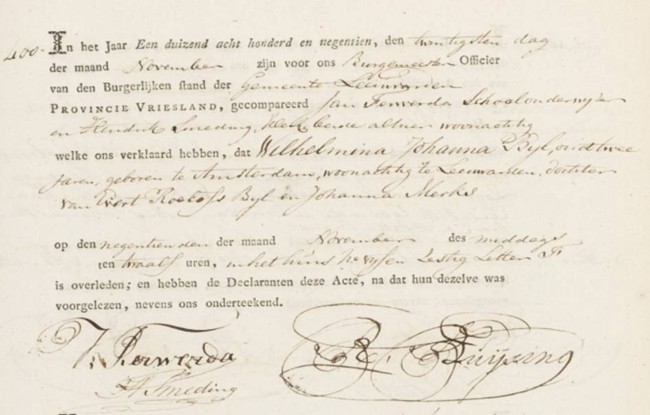 400
In het Jaar Een duizend acht honderd en negentien, den twintigsten dag
der maand November zijn voor ons Burgemeester Officier
van den Burgerlijken stand der Gemeente Leeuwarden
PROVINCIE VRIESLAND, gecompareerd Jan Ferwerda Schoolonderwijzer
en Hendrik Smeding, Klerk, beide alhier woonachtig
welke ons verklaard hebben, dat Wilhelmina Johanna Byl, oud twee
jaren, geboren te Amsterdam, woonachtig te Leeuwarden, dochter
van Evert Roelofs Byl en Johanna Merks
op den negentienden der maand November des middags
ten twaalf uren, in het huis Letter
is overleden; en hebben de Declaranten deze Acte, na dat hun dezelve was
voorgelezen, nevens ons onderteekend.
J. Ferwerda
H Smeding